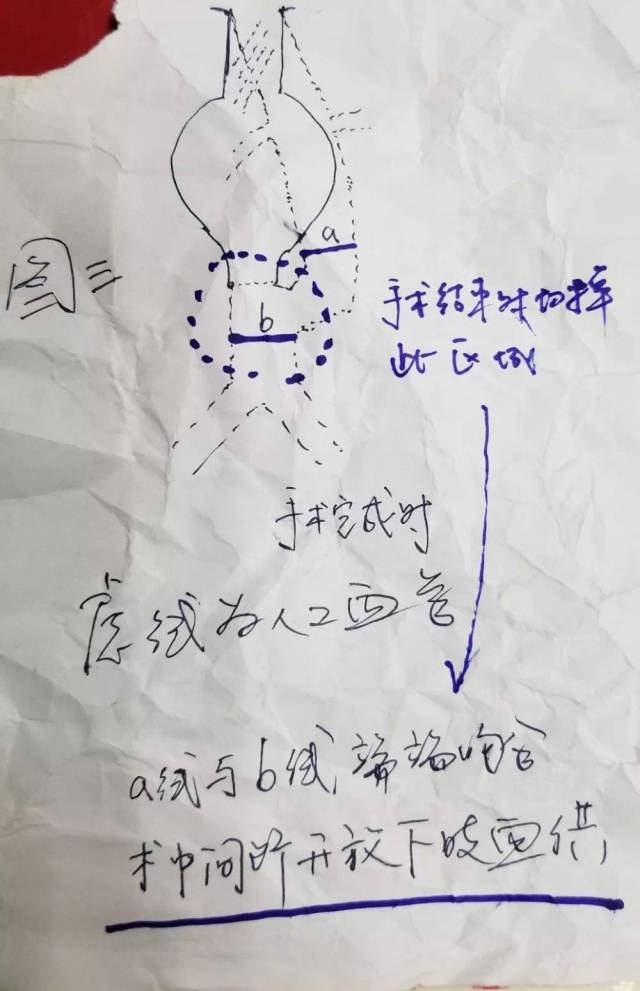 a
图三
b
手术结束时切掉
此区域
手术完成时
虚线为人工血管
a线与b线端端吻合
术中间断开放下肢血供